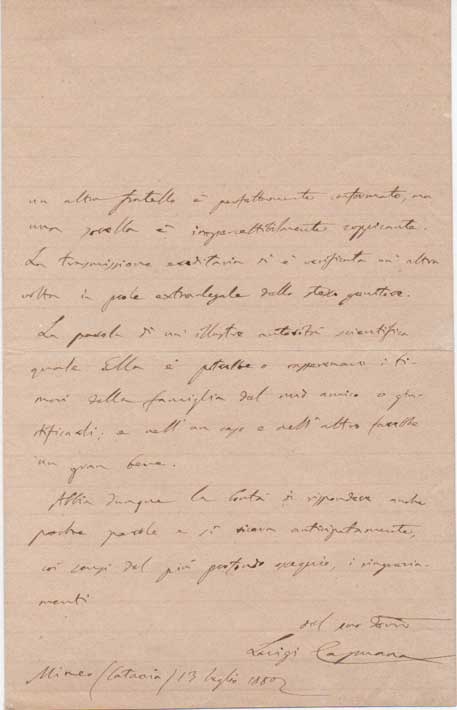 un altro fratello è perfettamente conformato, ma
una sorella è impercettibilmente zoppicante.
La trasmissione ereditaria si è verificata un'altra
volta in prole extralegale dello stesso genitore.
La parola di un'illustre autorità scientifica
quale Ella è potrebbe o rasserenare i ti-
mori della famiglia del mio amico o giu-
stificarli; e nell'un caso e nell'altro farebbe
un gran bene.
Abbia dunque la bontà di rispondere anche
poche parole e si riceva anticipatamente,
coi sensi del più profondo ossequio, i ringrazia-
menti
del suo Devmo
Luigi Capuana
Mineo (Catania) 13 luglio 1880